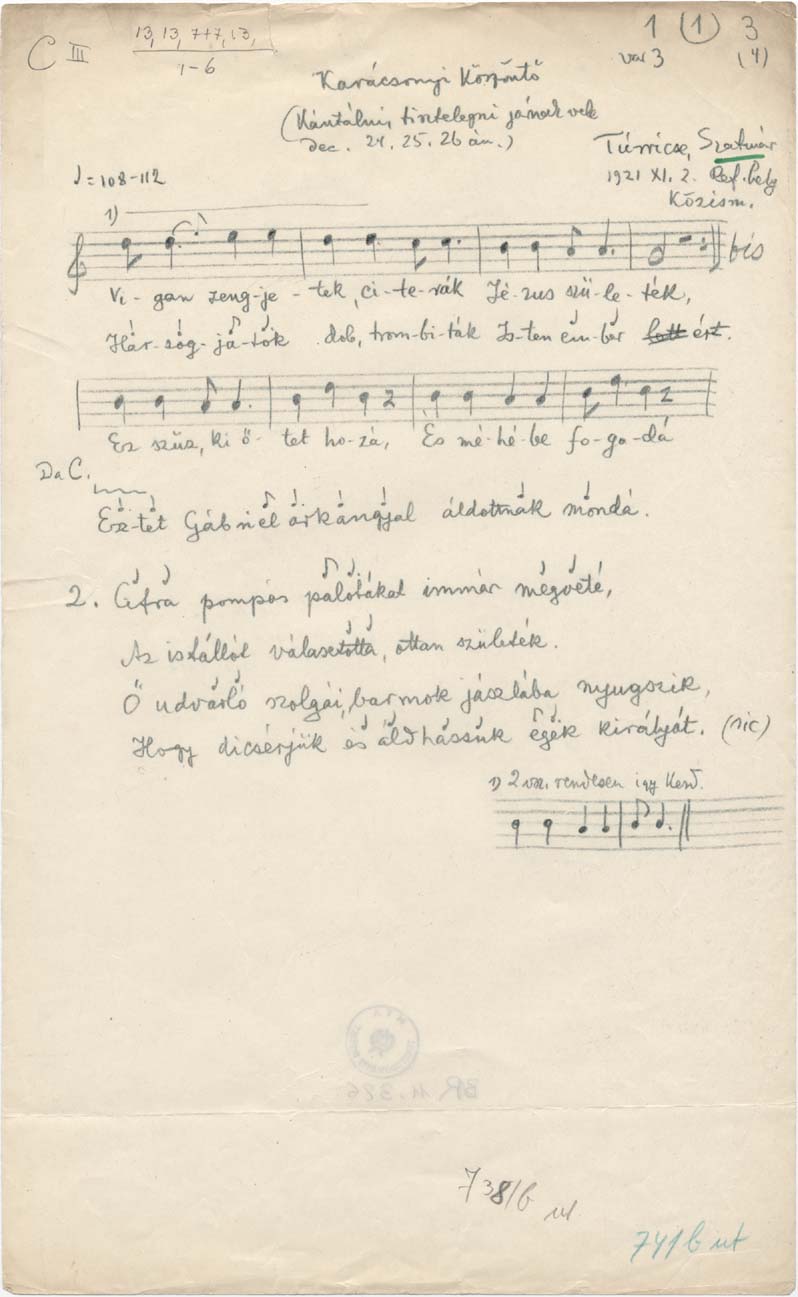 C III
13, 13, 7+7, 13,
1-6
1 (1) 3
var 3 (4)
Karácsonyi Köszöntő
(Kántálni, tisztelegni járnak vele
dec. 24, 25, 26 án.)
Túrricse, Szatmár
1921 XI. 2. Ref. belg
Közism.
♩=108-112
1)
bis
Vi-gan zeng-je-tek, ci-te-rák Jé-zus szü-le-ték,
Hár-sog-já-tok dob, trom-bi-ták Is-ten em-ber lett ért.
Ez szűz, ki ő-tet ho-zá, És mé-hé-be fo-ga-dá
Da C.
Ez-tet Gábriel árkángyal áldottnak mondá.
2. Cifra pompás palotákat immár megveté,
Az istállót választotta, ottan születék.
Ő udvarló szolgái, barmok jászlába nyugszik,
Hogy dicsérjük és áldhassuk egek királyát. (sic)
1) 2 vsz. rendesen így kezd.
BR 11.326
738/b
741 b ut